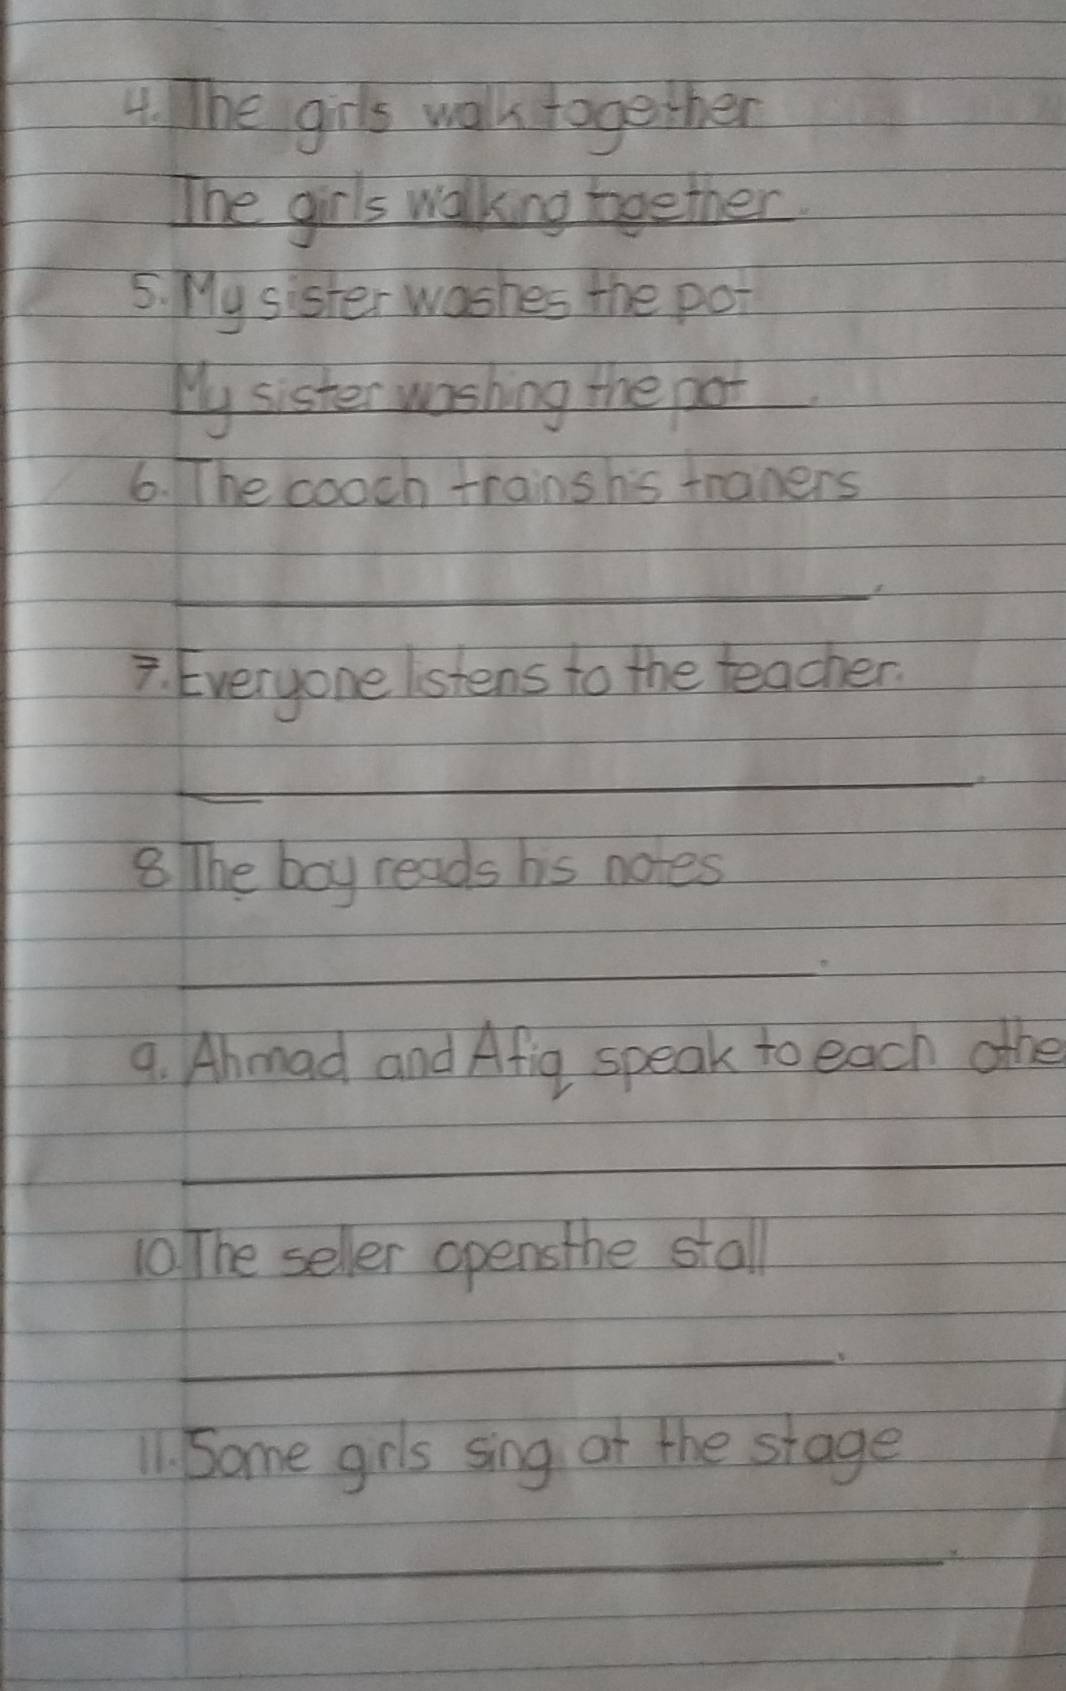 4. The girls walk together
The girls walking together.
5. My sister washes the pot
My sister washing the pot.
6. The cooch trains his traners
7. Everyone listens to the teacher.
8. The boy reads his notes
9. Ahmad and Afiq speak to each othe
10. The seller opens the stall
11. Some girls sing at the stage